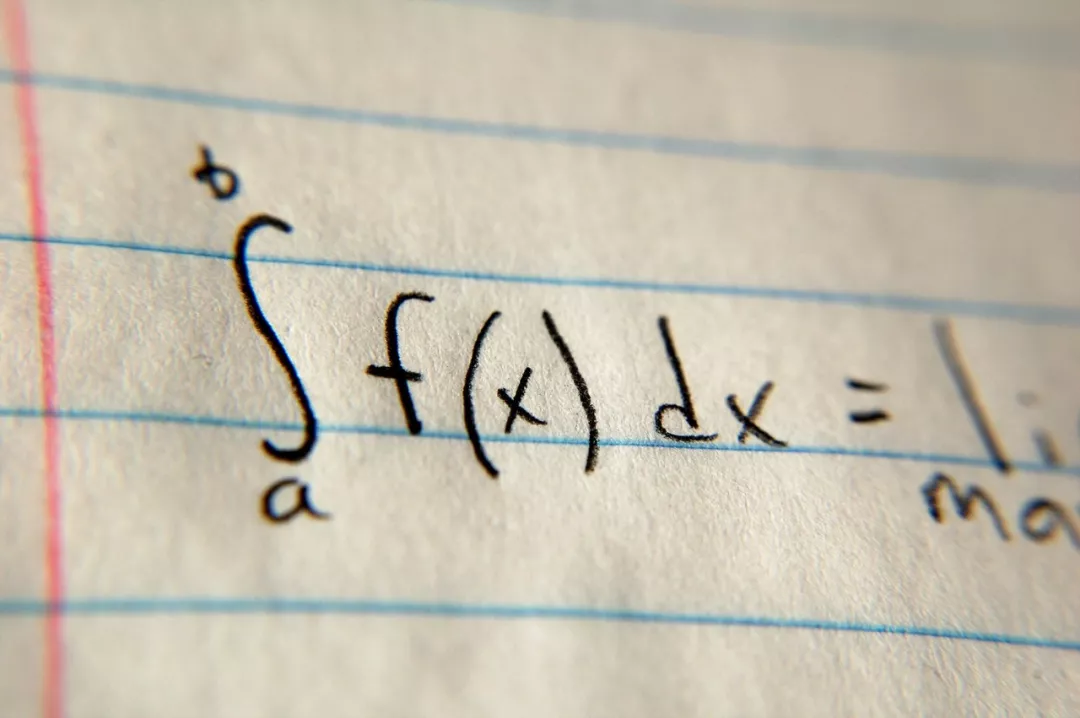 ∫_a^b f(x) dx = li
ma